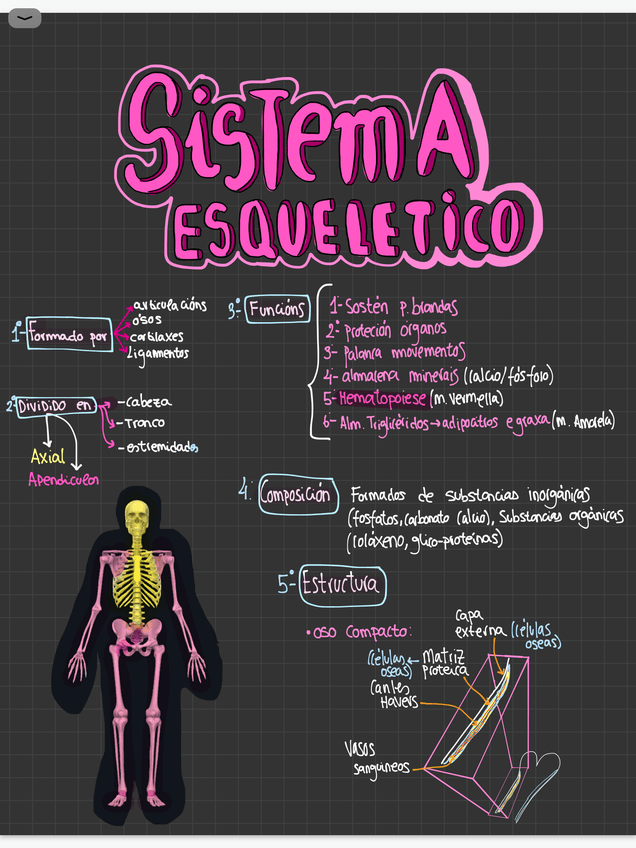 SisTemA
ESQUELETICO
1º- Formado por
articulacións
osos
cartilaxes
Ligamentos
2º DIVIDIDO en
-cabeza
-Tronco
-estremidades
Axial
Apendicular
3º- Funcións
1-Sostén p.brandas
2º Proteción órganos
3- Palanca movementos
4- almacena minerais (calcio/fósforo)
5-Hematopoiese (m.vermella)
6- Alm. Triglicéridos→adipocitos e graxa (m. Amarela)
4. Composición
Formados de substancias inorgánicas
(fosfatos, carbonato calcio), Substancias orgánicas
(coláxeno, glico-proteínas)
5º- Estructura
•oso Compacto:
capa
externa (células
oseas)
(células ← Matriz
oseas) Proteica
Canles
Havers
Vasos
sanguineos